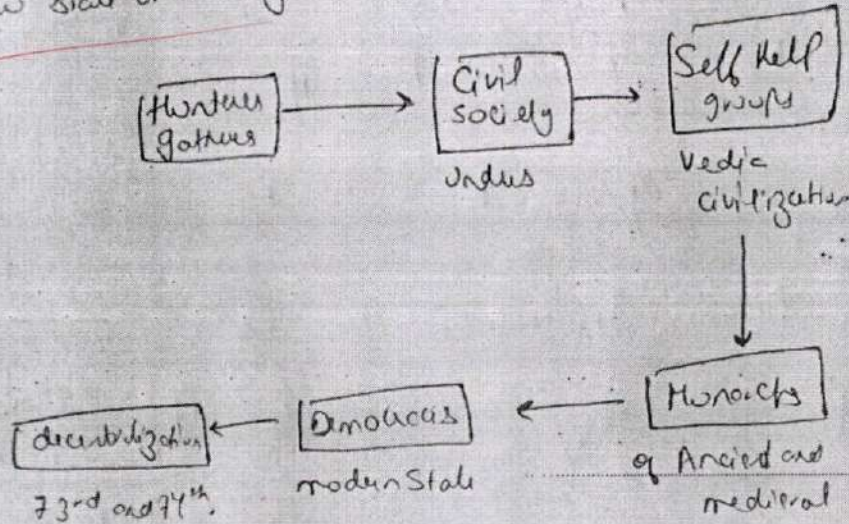 Hunters
gathers
Civil
society
Indus
Self Help
groups
Vedic
civilization
Monarchy
of Ancient and
medieval
Democracies
modern State
decentralization
73rd and 74th.